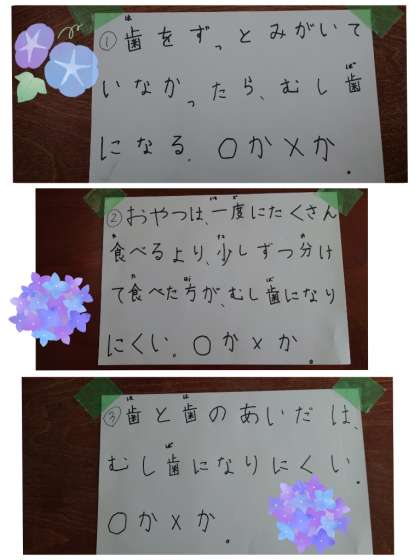 ①歯をずっとみがいて
いなかったら、むし歯
になる。○か×か。
②おやつは、一度にたくさん
食べるより、少しずつ分け
て食べた方が、むし歯になり
にくい。○か×か。
③歯と歯のあいだは、
むし歯になりにくい。
○か×か。